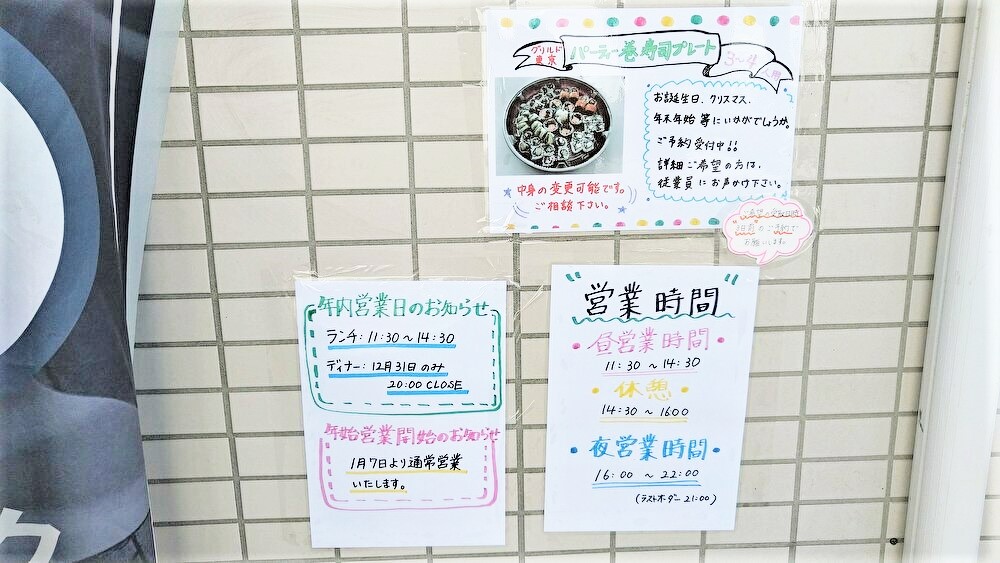 グリルド
東京
パーティー巻寿司プレート
3〜4人用
お誕生日、クリスマス、
年末年始 等にいかがでしょうか。
ご予約受付中!!
詳細ご希望の方は、
従業員にお声かけ下さい。
中身の変更可能です。
ご相談下さい。
3日前のご予約で
お願いします。
年内営業日のお知らせ
ランチ:11:30〜14:30
ディナー:12月31日のみ
20:00 CLOSE
年始営業開始のお知らせ
1月7日より通常営業
いたします。
営業時間
・昼営業時間・
11:30 〜 14:30
・休憩・
14:30 〜 1600
・夜営業時間・
16:00 〜 22:00
(ラストオーダー 21:00)
ク